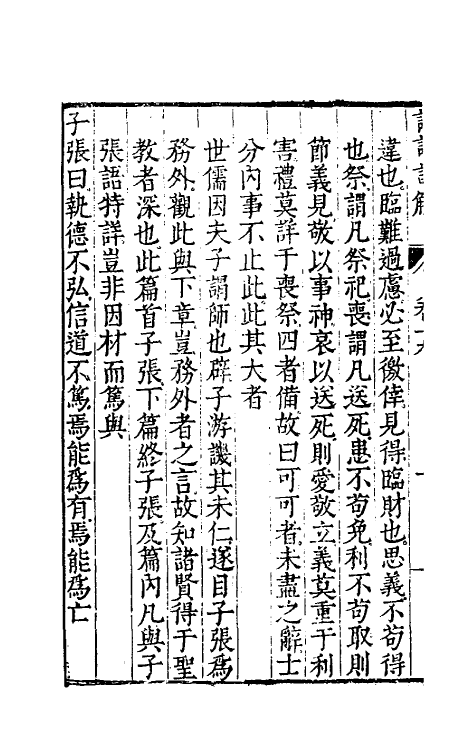 違也。臨難過慮必至徼倖見得臨財也。思義不苟得
也祭謂凡祭祀喪謂凡送死患不苟免利不苟取則
節義見敬以事神哀以送死則愛敬立義莫重于利
害禮莫詳于喪祭四者備故曰可可者未盡之辭士
分內事不止此此其大者
世儒因夫子謂師也辟子游譏其未仁遂目子張爲
務外觀此與下章豈務外者之言故知諸賢得于聖
教者深也此篇首子張下篇終子張及篇內凡與子
張語特詳豈非因材而篤與
子張曰執德不弘信道不篤焉能爲有焉能爲亡